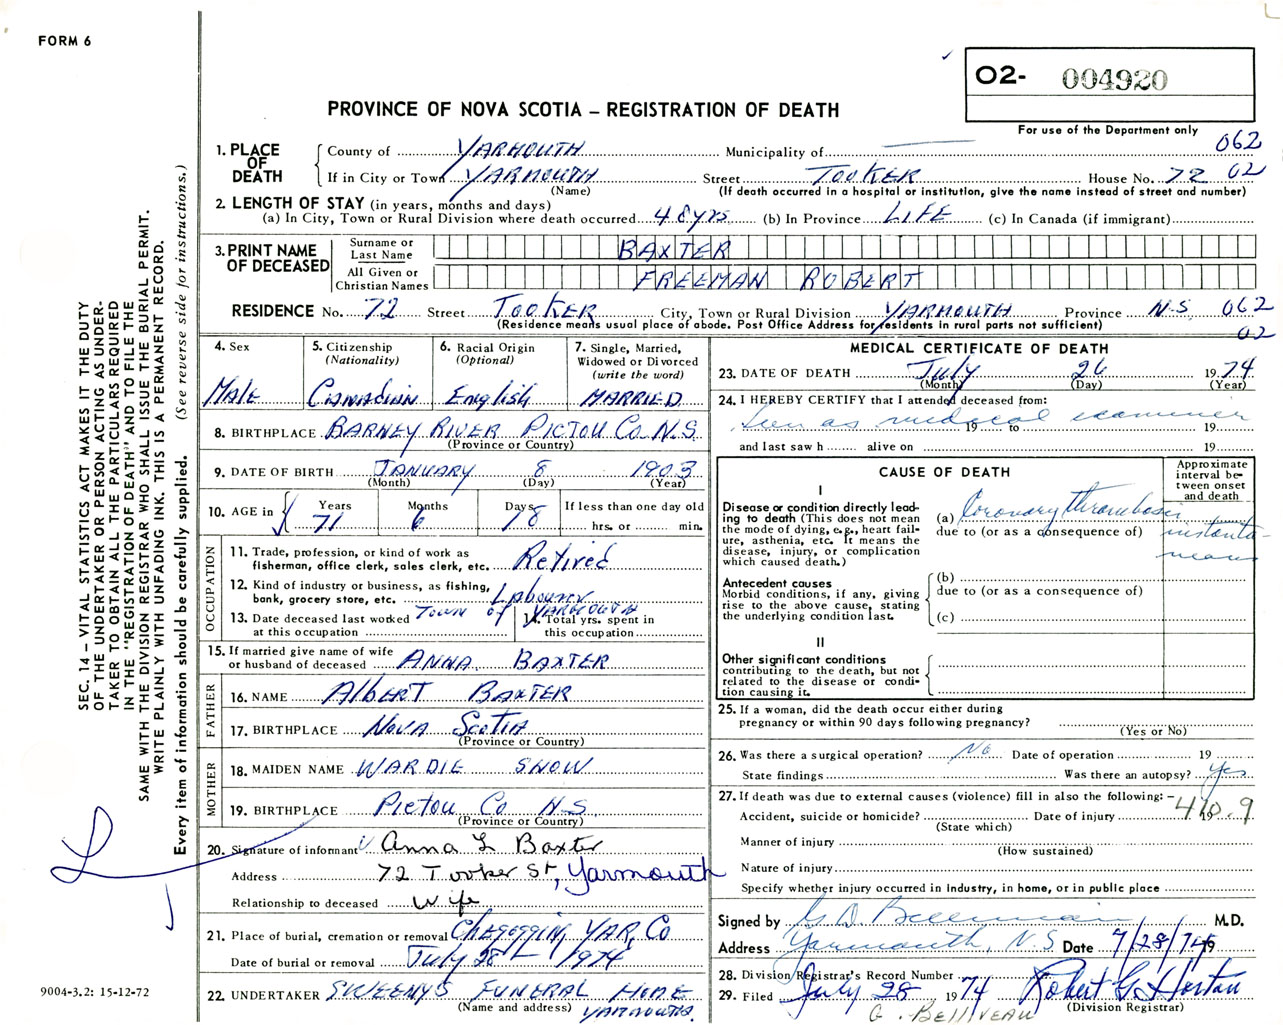 FORM 6
O2- 004920
PROVINCE OF NOVA SCOTIA – REGISTRATION OF DEATH
For use of the Department only
062
1. PLACE OF DEATH County of YARMOUTH Municipality of —
If in City or Town YARMOUTH (Name) Street TOOKER House No. 72 02
(If death occurred in a hospital or institution, give the name instead of street and number)
2. LENGTH OF STAY (in years, months and days)
(a) In City, Town or Rural Division where death occurred 48 yrs (b) In Province LIFE (c) In Canada (if immigrant)
3. PRINT NAME OF DECEASED
Surname or Last Name BAXTER
All Given or Christian Names FREEMAN ROBERT
RESIDENCE No. 72 Street TOOKER City, Town or Rural Division YARMOUTH Province N.S. 062
(Residence means usual place of abode. Post Office Address for residents in rural parts not sufficient)
02
4. Sex Male
5. Citizenship (Nationality) Canadian
6. Racial Origin (Optional) English
7. Single, Married, Widowed or Divorced (write the word) MARRIED
8. BIRTHPLACE BARNEY RIVER PICTOU Co N.S.
(Province or Country)
9. DATE OF BIRTH JANUARY 8 1903
(Month) (Day) (Year)
10. AGE in Years 71 Months 6 Days 18 If less than one day old hrs. or min.
OCCUPATION
11. Trade, profession, or kind of work as fisherman, office clerk, sales clerk, etc. Retired
12. Kind of industry or business, as fishing, bank, grocery store, etc. Labourer
TOWN OF YARMOUTH
13. Date deceased last worked at this occupation
14. Total yrs. spent in this occupation
15. If married give name of wife or husband of deceased ANNA BAXTER
FATHER
16. NAME Albert BAXTER
17. BIRTHPLACE NOVA SCOTIA
(Province or Country)
MOTHER
18. MAIDEN NAME WARDIE SNOW
19. BIRTHPLACE PICTOU Co N.S.
(Province or Country)
20. Signature of informant Anna L Baxter
Address 72 Tooker St, Yarmouth
Relationship to deceased Wife
21. Place of burial, cremation or removal Chegoggin, YAR. Co
Date of burial or removal July 28 – 1974
22. UNDERTAKER SWEENY'S FUNERAL HOME
(Name and address) YARMOUTH.
MEDICAL CERTIFICATE OF DEATH
23. DATE OF DEATH July 26 1974
(Month) (Day) (Year)
24. I HEREBY CERTIFY that I attended deceased from:
Seen as medical examiner
19 to 19
and last saw h alive on 19
CAUSE OF DEATH
Approximate interval between onset and death
I
Disease or condition directly leading to death (This does not mean the mode of dying, e.g., heart failure, asthenia, etc. It means the disease, injury, or complication which caused death.)
(a) Coronary thrombosis instantaneous
due to (or as a consequence of)
Antecedent causes
Morbid conditions, if any, giving rise to the above cause, stating the underlying condition last.
(b)
due to (or as a consequence of)
(c)
II
Other significant conditions contributing to the death, but not related to the disease or condition causing it.
25. If a woman, did the death occur either during pregnancy or within 90 days following pregnancy?
(Yes or No)
26. Was there a surgical operation? No Date of operation 19
State findings Was there an autopsy? yes
27. If death was due to external causes (violence) fill in also the following: –
410.9
Accident, suicide or homicide? Date of injury 19
(State which)
Manner of injury
(How sustained)
Nature of injury
Specify whether injury occurred in industry, in home, or in public place
Signed by G D Belliveau M.D.
Address Yarmouth, N.S Date 7/28/74 19
28. Division Registrar's Record Number
29. Filed July 28 1974 Robert G Horton
(Division Registrar)
G. BELLIVEAU
SEC. 14 – VITAL STATISTICS ACT MAKES IT THE DUTY
OF THE UNDERTAKER OR PERSON ACTING AS UNDER-
TAKER TO OBTAIN ALL THE PARTICULARS REQUIRED
IN THE "REGISTRATION OF DEATH" AND TO FILE THE
SAME WITH THE DIVISION REGISTRAR WHO SHALL ISSUE THE BURIAL PERMIT.
WRITE PLAINLY WITH UNFADING INK. THIS IS A PERMANENT RECORD.
Every item of information should be carefully supplied. (See reverse side for instructions.)
9004-3.2: 15-12-72